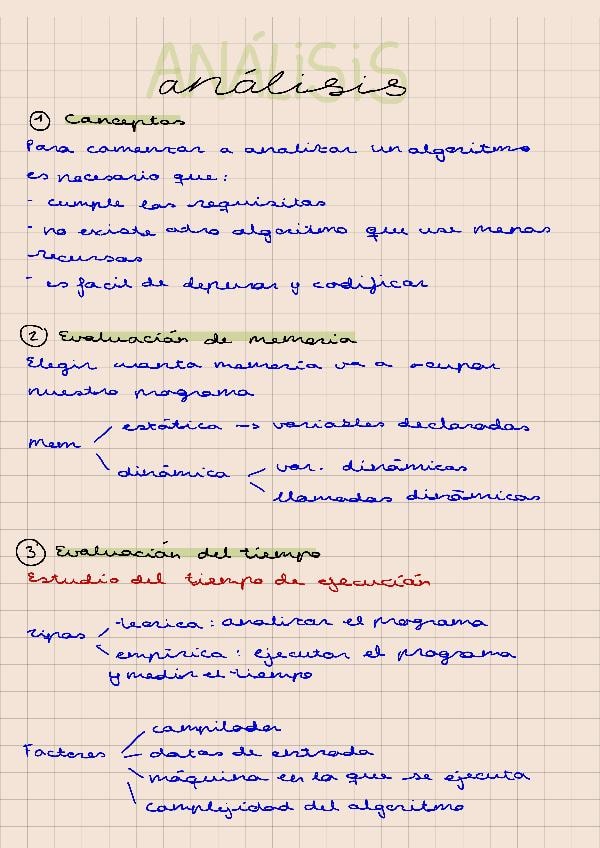 ANÁLISIS
análisis
① Conceptos
Para comenzar a analizar un algoritmo
es necesario que:
- cumple los requisitos
- no existe otro algoritmo que use menos
recursos
- es facil de depurar y codificar
② Evaluación de memoria
Elegir cuanta memoria va a ocupar
nuestro programa
Mem
estática -> variables declaradas
dinámica
var. dinámicas
llamadas dinámicas
③ Evaluación del tiempo
Estudio del tiempo de ejecución
tipos
teorica: analizar el programa
empírica: ejecutar el programa
y medir el tiempo
Factores
compilador
datos de entrada
máquina en la que se ejecuta
complejidad del algoritmo